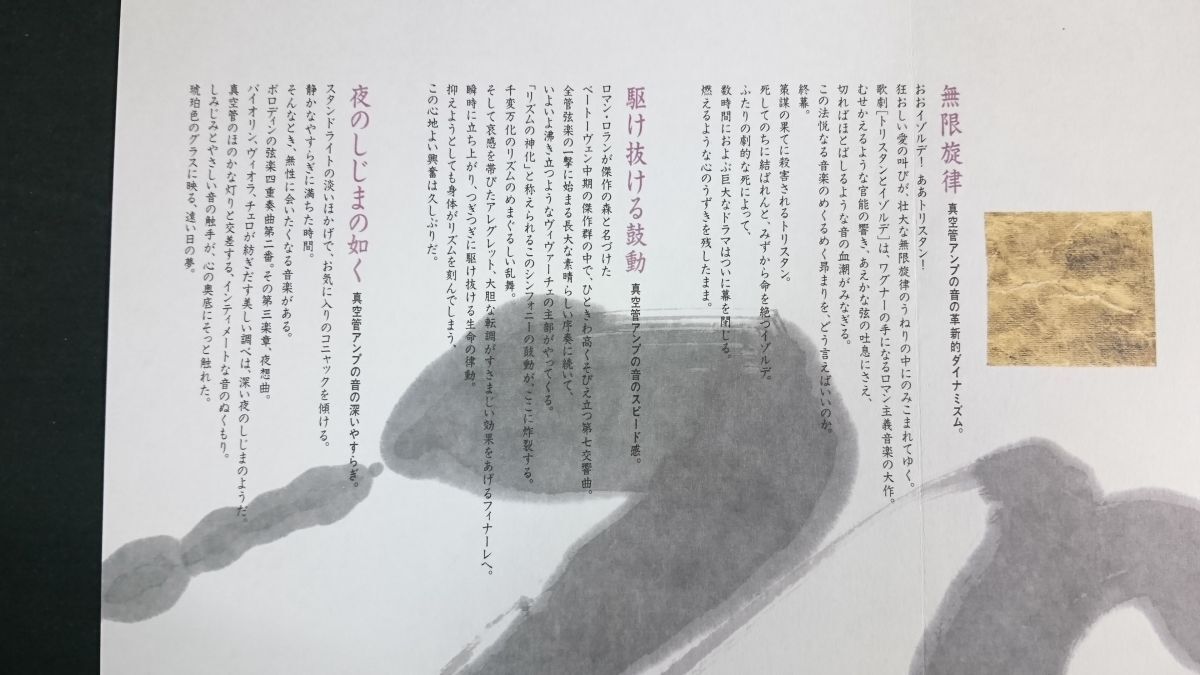 無限旋律
真空管アンプの音の革新的ダイナミズム。
おおイゾルデ！ああトリスタン！
狂おしい愛の叫びが、壮大な無限旋律のうねりの中にのみこまれてゆく。
歌劇[トリスタンとイゾルデ]は、ワグナーの手になるロマン主義音楽の大作。
むせかえるような官能の響き、あえかな弦の吐息にさえ、
切ればほとばしるような音の血潮がみなぎる。
この法悦なる音楽のめくるめく昂まりを、どう言えばいいのか。
終幕。
策謀の果てに殺害されるトリスタン。
死してのちに結ばれんと、みずから命を絶つイゾルデ。
ふたりの劇的な死によって、
数時間におよぶ巨大なドラマはついに幕を閉じる。
燃えるような心のうずきを残したまま。
駆け抜ける鼓動
真空管アンプの音のスピード感。
ロマン・ロランが傑作の森と名づけた
ベートーヴェン中期の傑作群の中で、ひときわ高くそびえ立つ第七交響曲。
全管弦楽の一撃に始まる長大な素晴らしい序奏に続いて、
いよいよ沸き立つようなヴィヴァーチェの主部がやってくる。
「リズムの神化」と称えられるこのシンフォニーの鼓動が、ここに炸裂する。
千変万化のリズムのめまぐるしい乱舞。
そして哀感を帯びたアレグレット、大胆な転調がすさまじい効果をあげるフィナーレへ。
瞬時に立ち上がり、つぎつぎに駆け抜ける生命の律動。
抑えようとしても身体がリズムを刻んでしまう、
この心地よい興奮は久しぶりだ。
夜のしじまの如く
真空管アンプの音の深いやすらぎ。
スタンドライトの淡いほかげで、お気に入りのコニャックを傾ける。
静かなやすらぎに満ちた時間。
そんなとき、無性に会いたくなる音楽がある。
ボロディンの弦楽四重奏曲第二番。その第三楽章、夜想曲。
バイオリン、ヴィオラ、チェロが紡ぎだす美しい調べは、深い夜のしじまのようだ。
真空管のほのかな灯りと交差する、インティメートな音のぬくもり。
しみじみとやさしい音の触手が、心の奥底にそっと触れた。
琥珀色のグラスに映る、遠い日の夢。